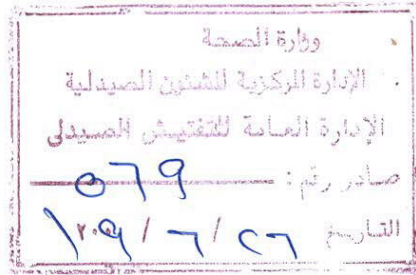 وزارة الصحة
الإدارة المركزية للشئون الصيدلية
الإدارة العامة للتفتيش الصيدلى
صادر رقم : ٥٦٩
التاريخ ٢٦ / ٦ /